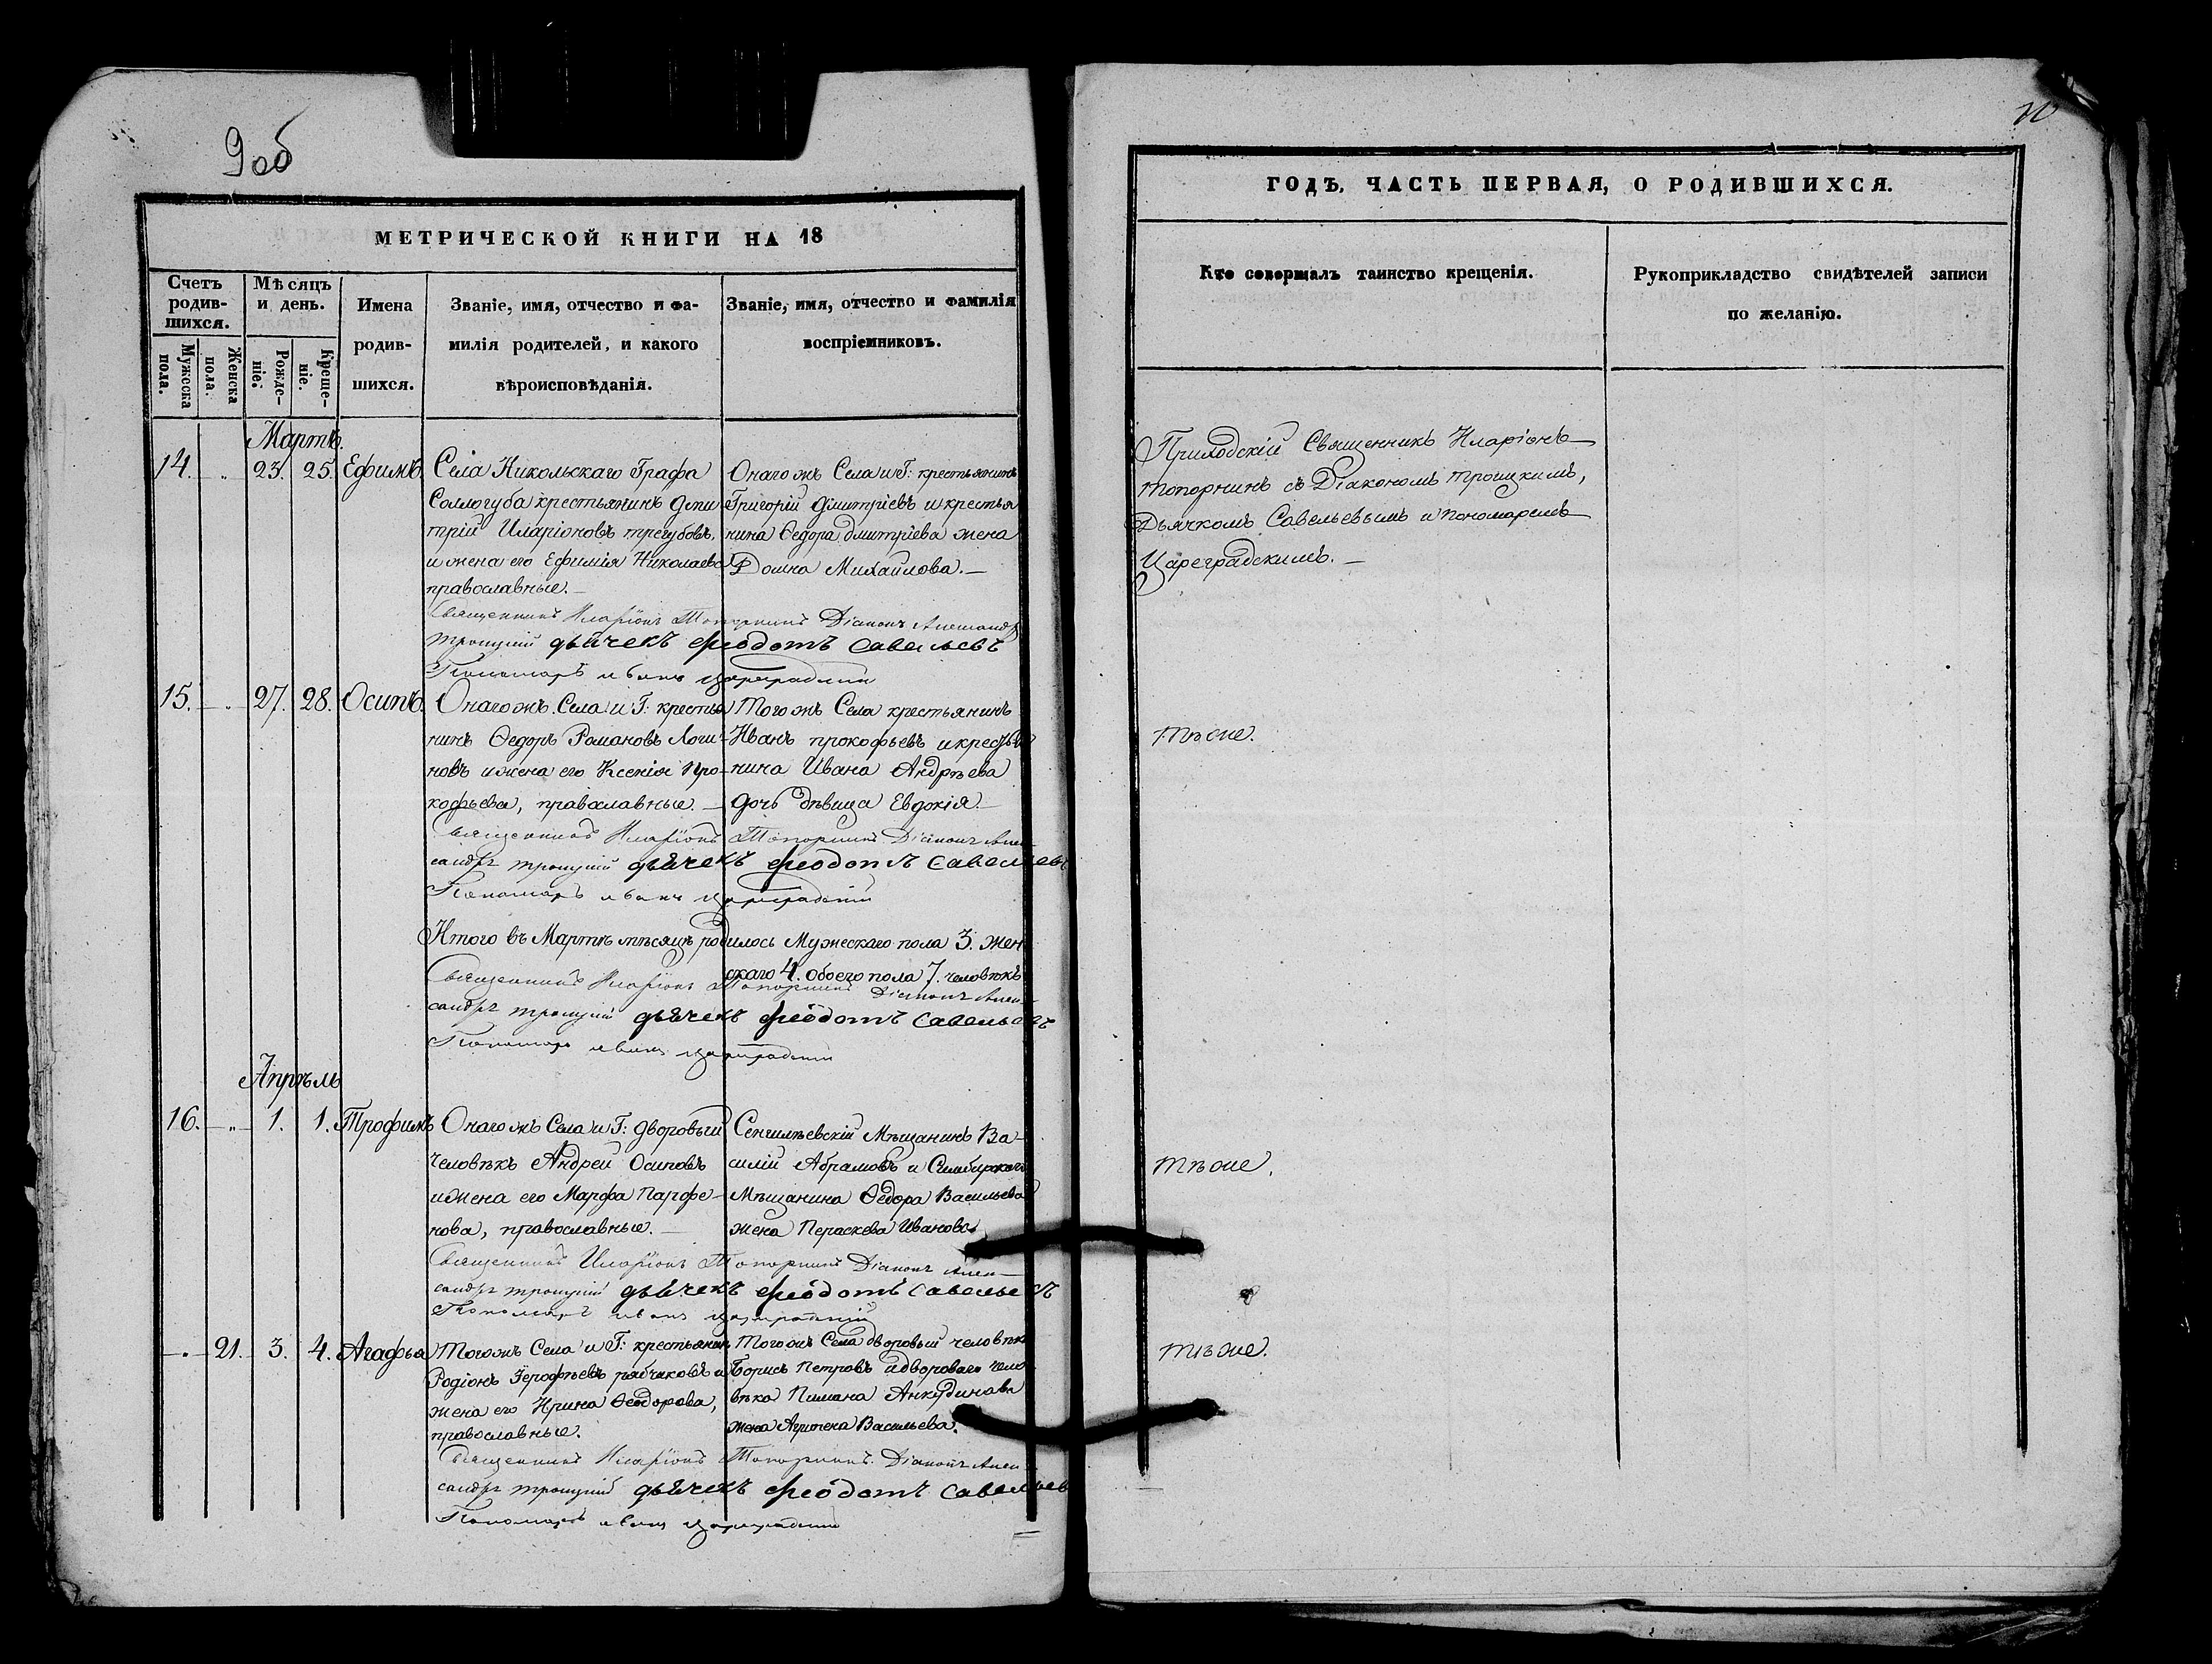 9 об
МЕТРИЧЕСКОЙ КНИГИ НА 18
Счетъ родив-шихся.
Мужеска пола.
Женска пола.
Мѣсяцъ и день.
Рожде-ніе.
Креще-ніе.
Имена родив-шихся.
Званіе, имя, отчество и фа-
милія родителей, и какого
вѣроисповѣданія.
Званіе, имя, отчество и фамилія
воспріемниковъ.
Мартъ.
14. „ 23. 25. Ефимъ.
Села Никольскаго Графа
Соллогуба крестьянинъ Дми
трій Иларіоновъ трегубовъ,
и жена его Ефимія Николаева
православные.
Онаго жъ Села и Г: крестьянинъ
Григорій Дмитріевъ и крестья
нина Ѳедора дмитріева жена
Домна Михайлова.
Священникъ Иларіонъ Топорнинъ Діаконъ Александръ
Троицкій дьячекъ Ѳеодотъ Савельевъ
Пономарь Иванъ Цареградскій
15. „ 27. 28. Осипъ.
Онаго жъ Села и Г: крестья
нинъ Ѳедоръ Романовъ Логи-
новъ и жена его Ксенія Про-
кофьева, православные.
Того жъ Села крестьянинъ
Иванъ прокофьевъ и крестья
нина Ивана Андрѣева
дочь дѣвица Евдокія
Священникъ Иларіонъ Топорнинъ Діаконъ Алек-
сандръ троицкій дьячекъ Ѳеодотъ Савельевъ
Пономарь Иванъ Цареградскій
Итого въ Мартѣ мѣсяцѣ родилось Мужескаго пола 3. Жен
скаго 4. обоего пола 7. человѣкъ
Священникъ Иларіонъ Топорнинъ Діаконъ Алек-
сандръ троицкій дьячекъ Ѳеодотъ Савельевъ
Пономарь Иванъ Цареградскій
Апрѣль
16. „ 1. 1. Трофимъ
Онаго жъ Села и Г: дворовый
человѣкъ Андрей Осиповъ
и жена его Марфа Парфе-
нова, православные.
Сенгилѣевскій Мѣщанинъ Ва-
силій Абрамовъ и Симбирскаго
Мѣщанина Ѳедора Васильева
жена Пераскева Иванова
Священникъ Иларіонъ Топорнинъ Діаконъ Алек-
сандръ троицкій дьячекъ Ѳеодотъ Савельевъ
Пономарь Иванъ Цареградскій
„ 21. 3. 4. Агафья
Того жъ Села и Г: крестьянинъ
Родіонъ Ерофѣевъ рябчиковъ и
жена его Ирина Ѳеодорова,
православные.
Того жъ Села дворовый человѣкъ
Борисъ Петровъ и двороваго чело
вѣка Пимана Анкудинова
жена Агрипена Васильева.
Священникъ Иларіонъ Топорнинъ Діаконъ Алек-
сандръ троицкій дьячекъ Ѳеодотъ Савельевъ
Пономарь Иванъ Цареградскій
10
ГОДЪ, ЧАСТЬ ПЕРВАЯ, О РОДИВШИХСЯ.
Кто совершалъ таинство крещенія.
Рукоприкладство свидѣтелей записи
по желанію.
Приходскій Священникъ Иларіонъ
топорнинъ съ Діакономъ троицкимъ,
Дьячкомъ Савельевымъ и пономаремъ
Цареградскимъ.
тѣже.
тѣже.
тѣже.